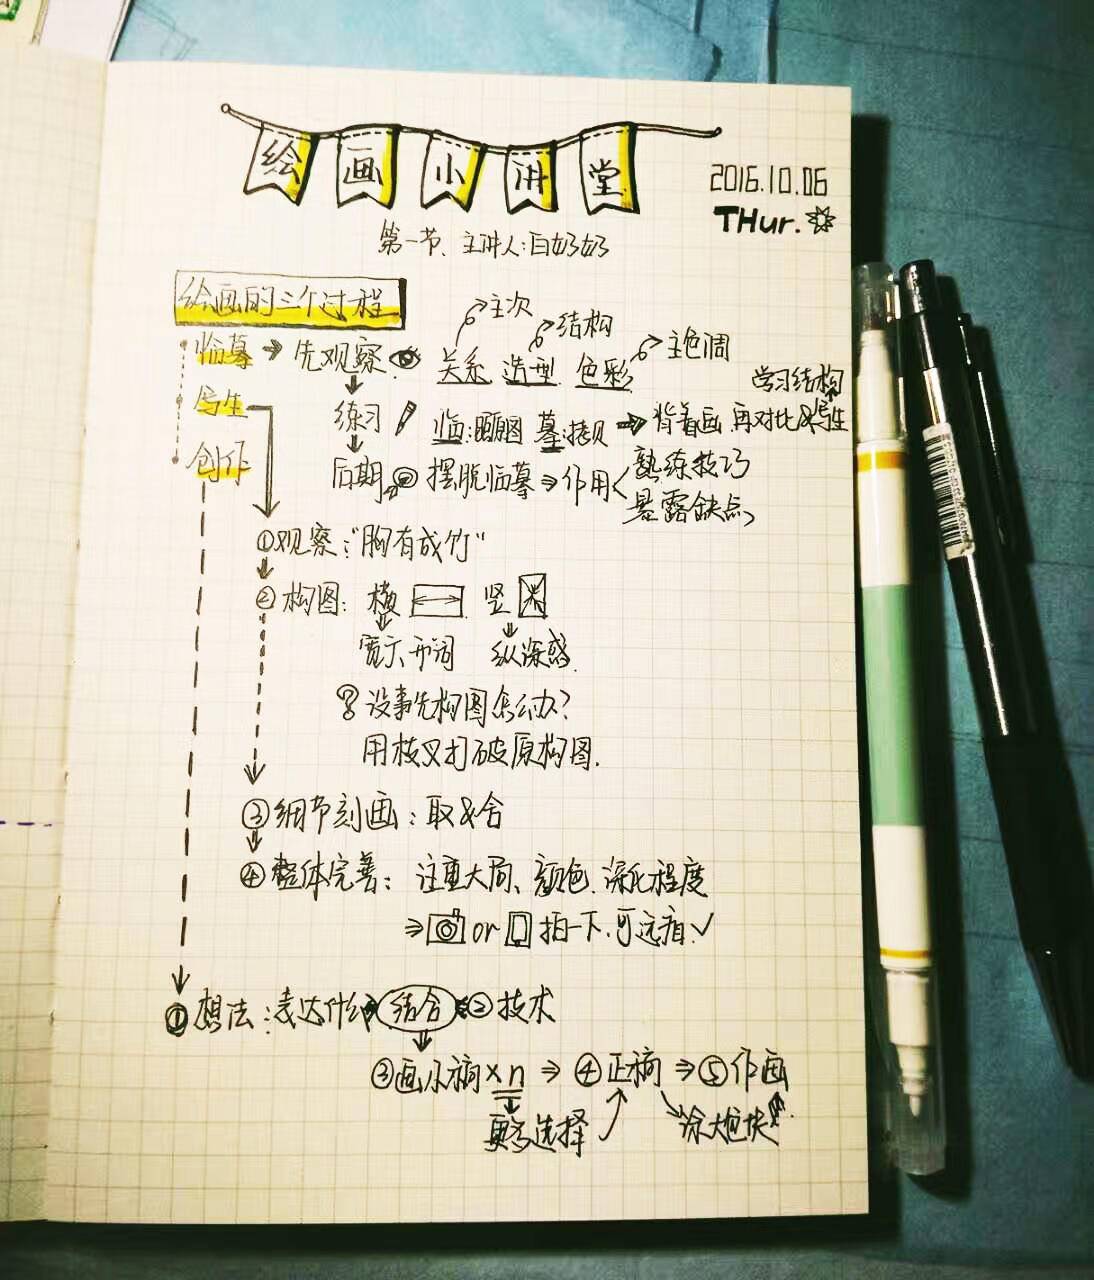 绘画小讲堂
2016.10.06
THur.
第一节、主讲人:白奶奶
绘画的三个过程
临摹 → 先观察 关系 造型 色彩
主次
结构
主色调
写生
练习 临:看图 摹:拷贝 → 背着画 再对比&写生
学习结构
创作
后期 摆脱临摹 ⇒ 作用<
熟练技巧
暴露缺点
①观察:"胸有成竹"
②构图: 横 竖
宽广、开阔 纵深感
? 没事先构图怎么办?
用枝叉打破原构图.
③细节刻画:取&舍
④整体完善: 注重大局、颜色.深化程度
⇒ or 拍一下.可远看✓
①想法:表达什么 结合 ②技术
③画小稿×n ⇒ ④正稿 ⇒ ⑤作画
更多选择 涂大色块